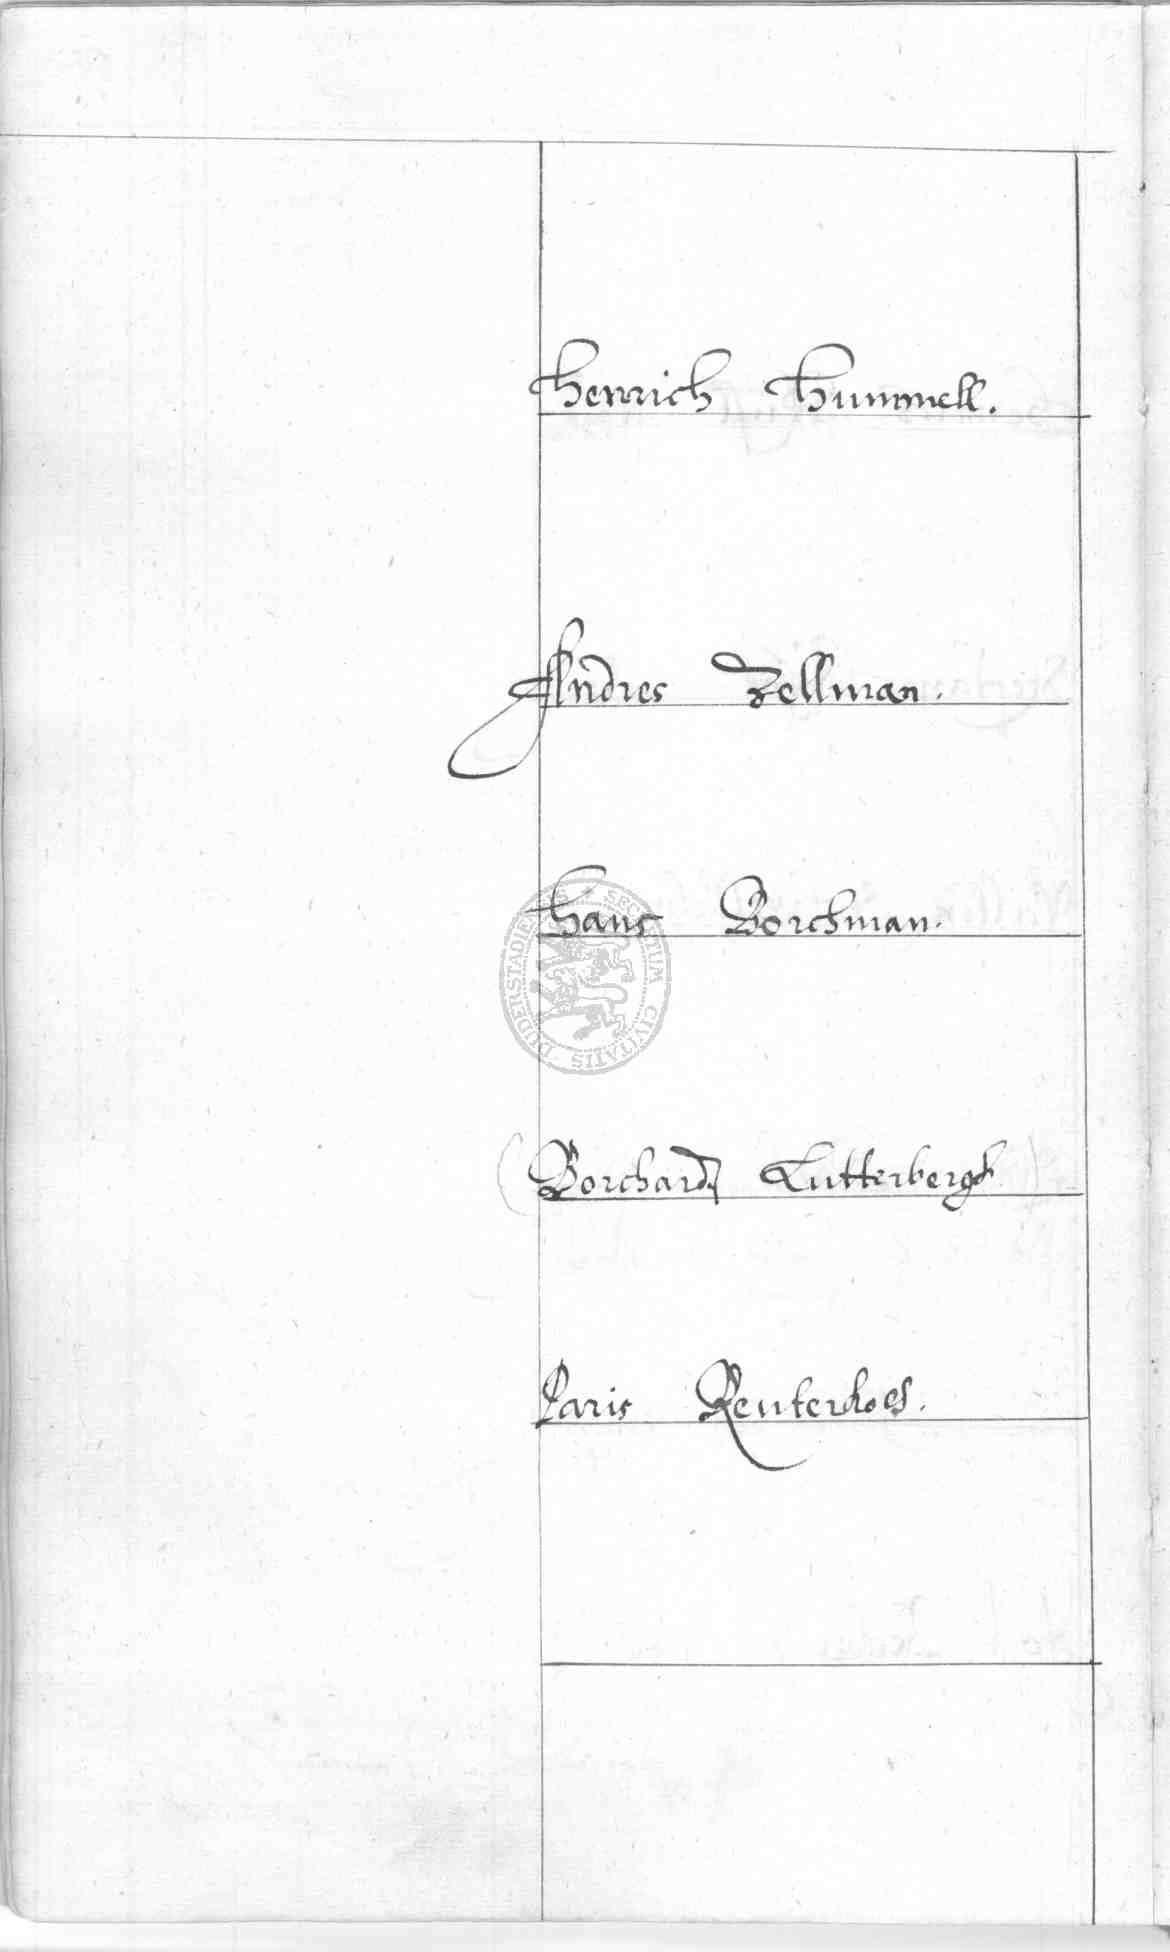 Henrich Hummell.
Andres Zellman.
Hans Borchman.
SECRETUM CIVITATIS DUDERSTADIENSIS
Borchard Lutterbergh
Paris Reuterhoes.